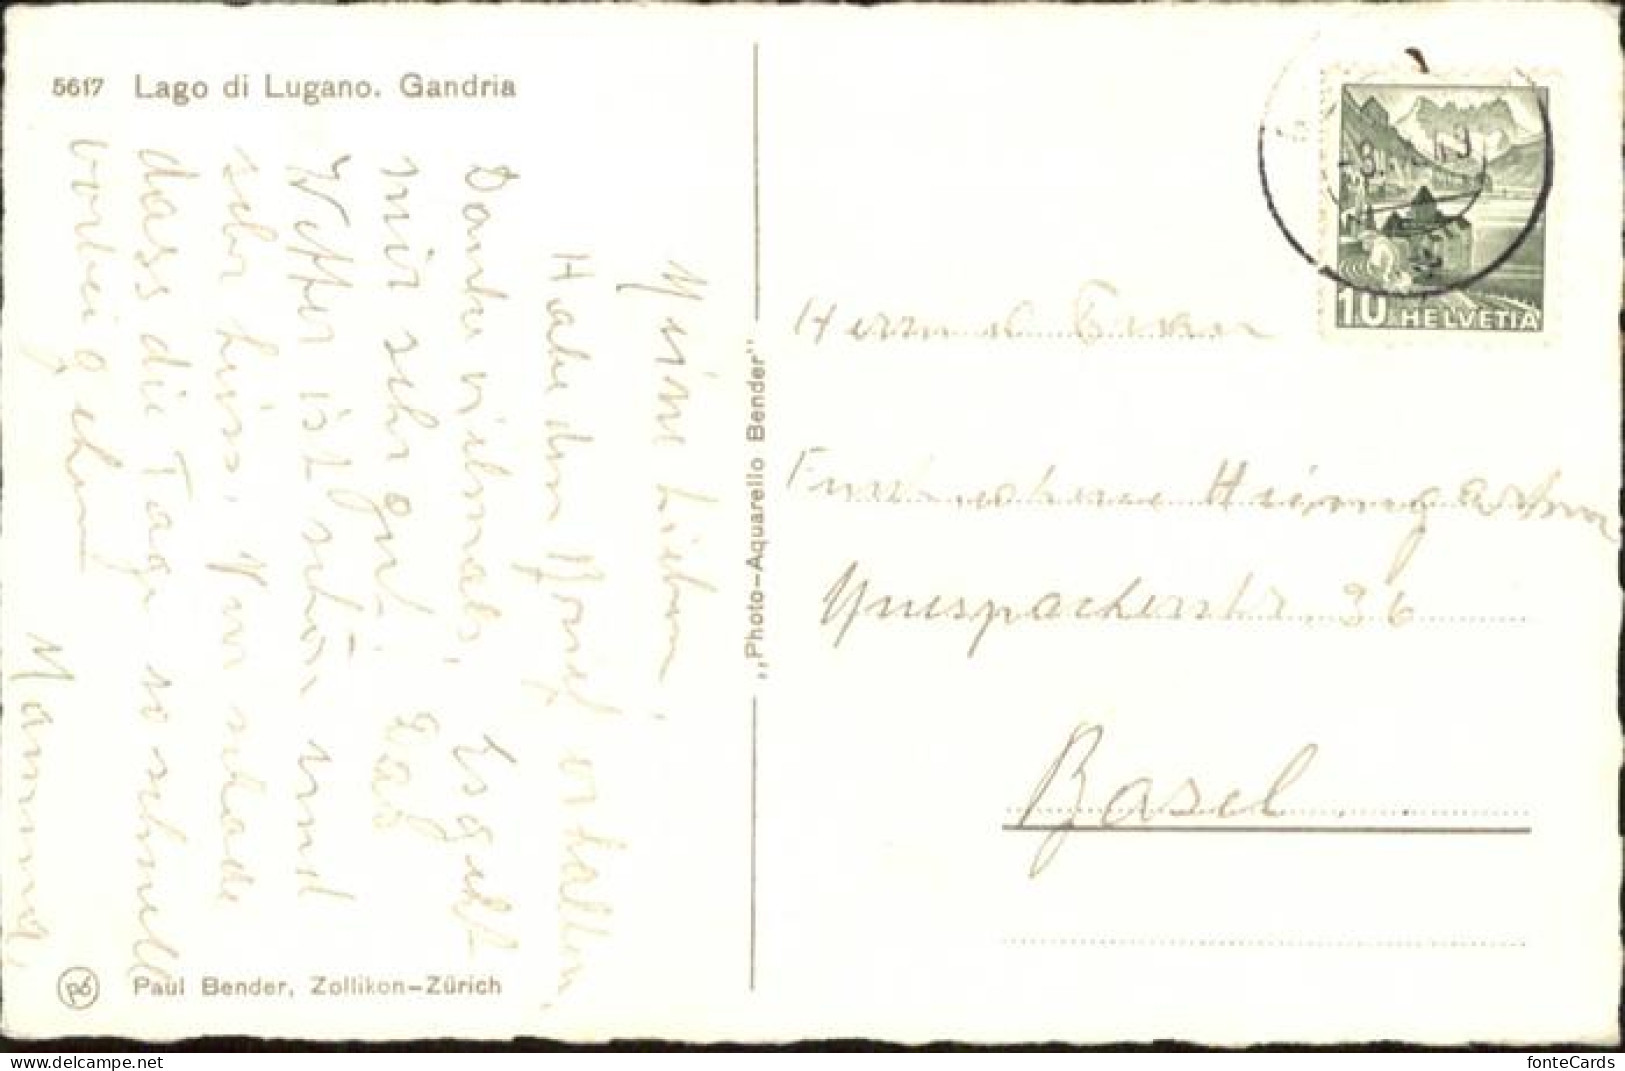 5617 Lago di Lugano. Gandria
Meine Lieben,
Habe den Brief erhalten,
Danke vielmals, Es geht
mir sehr gut. Das
Wetter ist schön und
sehr heiss. Nur schade
dass die Tage so schnell
vorbei gehen
Mamma,
Paul Bender, Zollikon-Zürich
„Photo-Aquarello Bender"
HELVETIA
10
36
Basel
delcampe.net
fonteCards